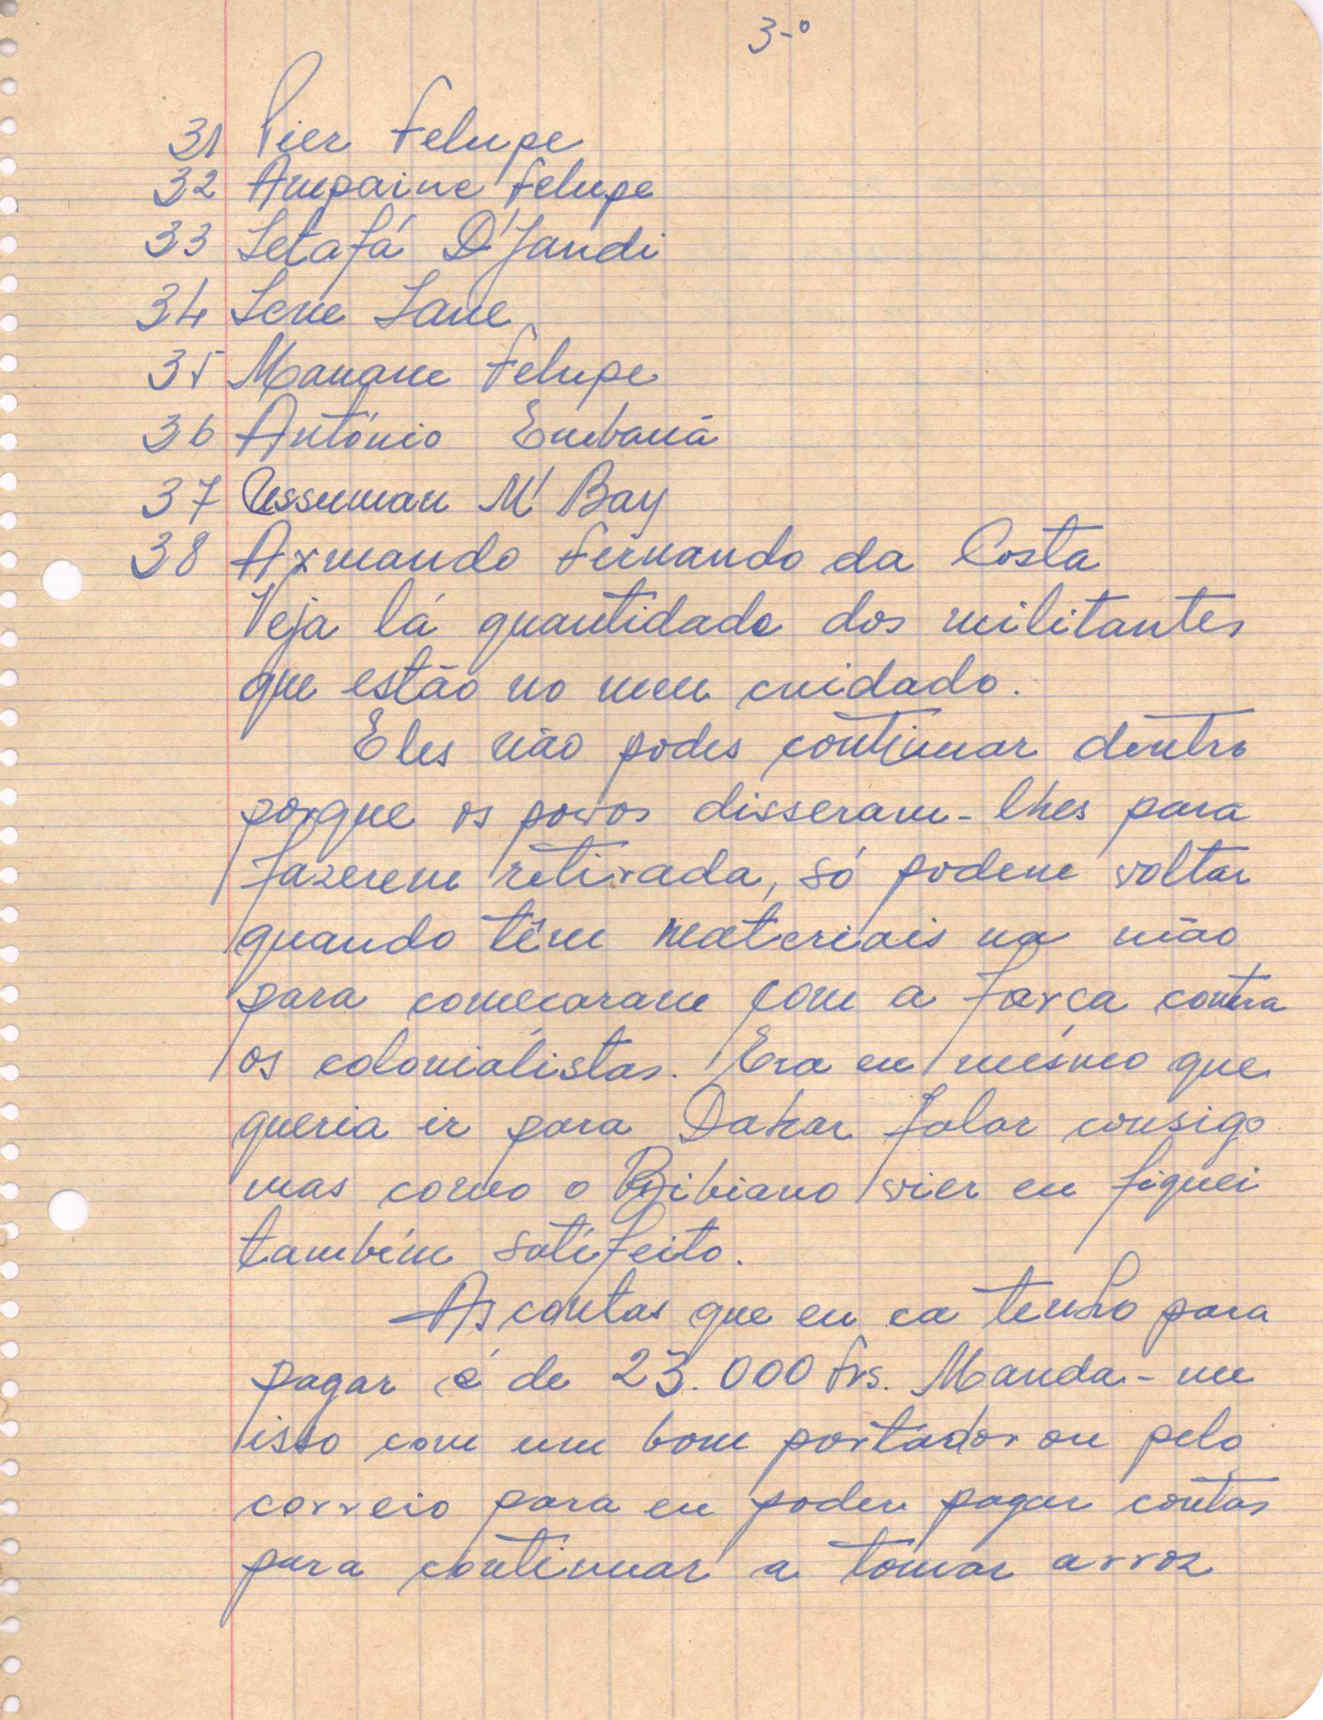 3-º
31 Pier Felupe
32 Ampaine Felupe
33 Setafá D'Jandi
34 Sene Sane
35 Manane Felupe
36 António Embaná
37 Ussuman M' Bay
38 Armando Fernando da Costa
Veja lá quantidade dos militantes
que estão no meu cuidado.
Eles não podes continuar dentro
porque os povos disseram-lhes para
fazerem retirada, só podem voltar
quando têm materiais na mão
para comecaram com a força contra
os colonialistas. Era eu mesmo que
queria ir para Dakar falar consigo
mas como o Bibiano vier eu fiquei
também satifeito.
As contas que eu ca tenho para
pagar é de 23.000 frs. Manda-me
isso com um bom portador ou pelo
correio para eu poder pagar contas
para continuar a tomar arroz